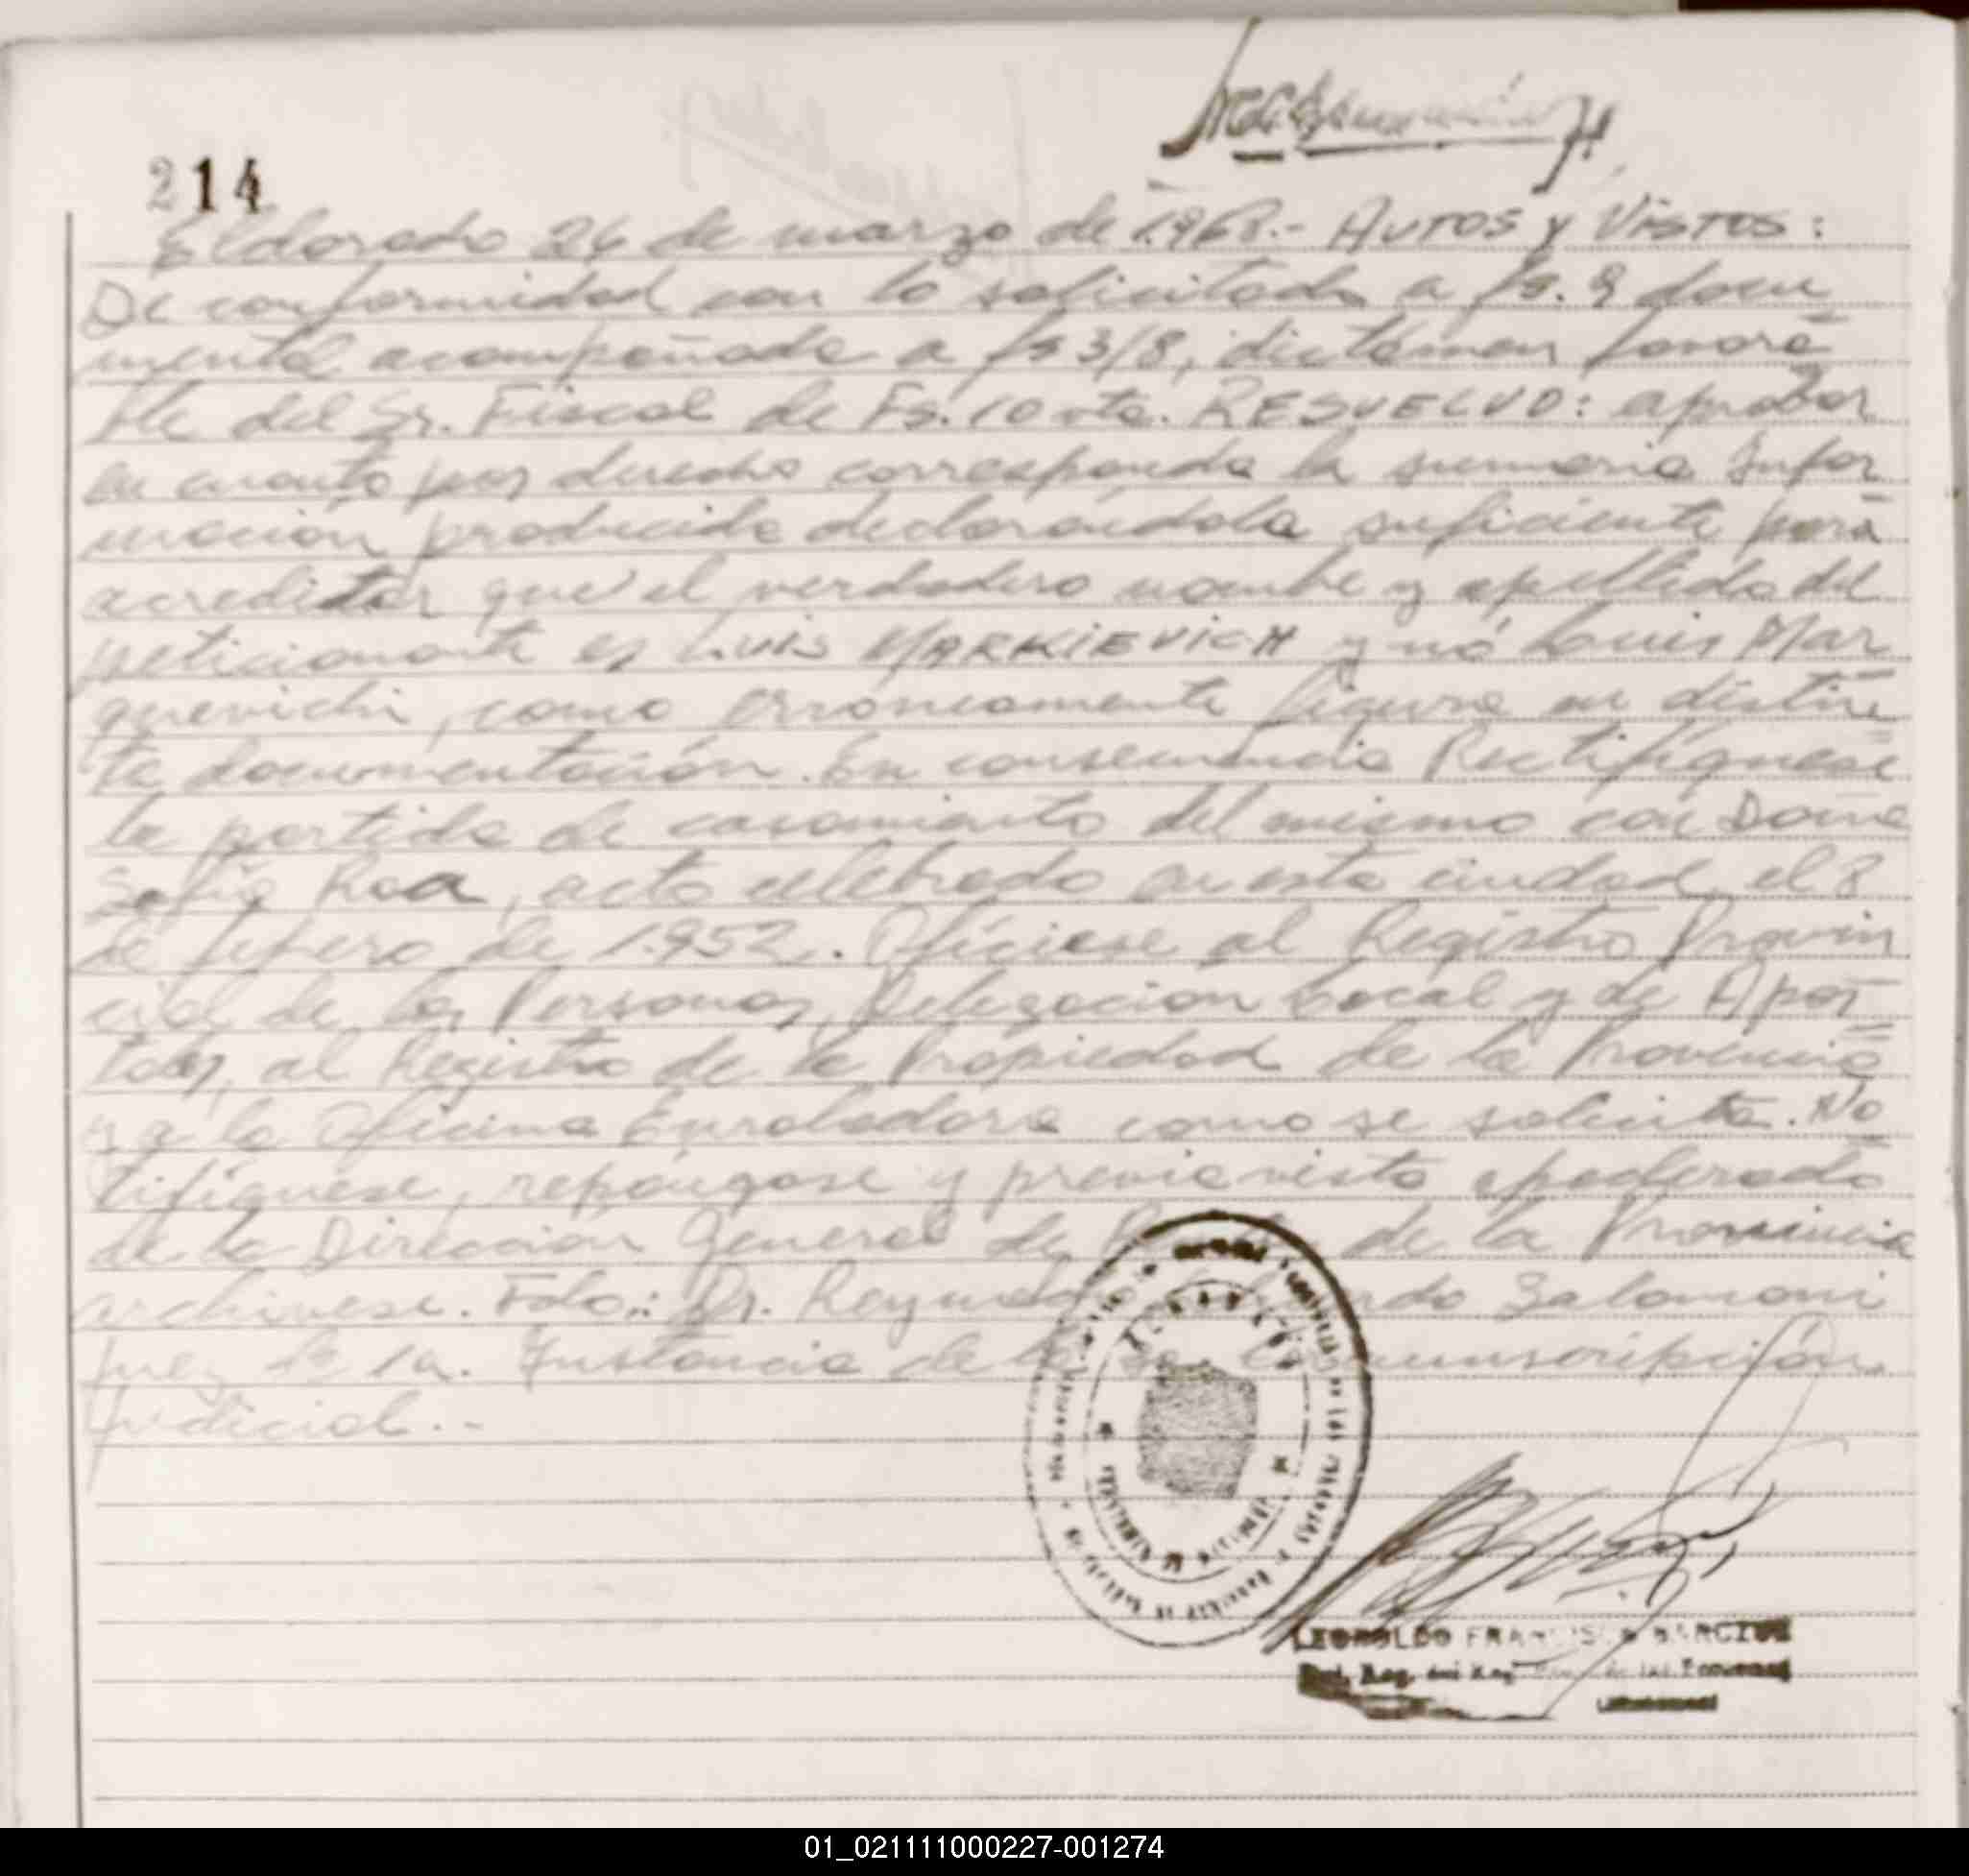 214
Eldorado 26 de marzo de 1.968.- AUTOS y VISTOS:
De conformidad con lo solicitado a fs. 9 docu
mental acompañada a fs 3/8, dictámen favora
ble del Sr. Fiscal de Fs. 10 vta. RESUELVO: aprobar
en cuanto por derecho corresponda la sumaria Infor
mación producida declarándola suficiente para
acreditar que el verdadero nombre y apellido del
peticionante es LUIS MARKIEVICH y no Luis Mar
quevichi, como erróneamente figura en distin
ta documentación. En consecuencia Rectifíquese
la partida de casamiento del mismo con Doña
Sofia Roa, acto celebrado en esta ciudad, el 8
de febrero de 1.952. Ofíciese al Registro Provin
cial de las Personas, Delegación Local y de Após
toles, al Registro de la Propiedad de la Provincia
y a la Oficina Enroladora como se solicita. No
tifíquese, repóngase y previa vista apoderado
de la Dirección General de de la Provincia
archivese. Fdo.: Dr. Salomoni
Juez de 1a. Instancia de la Circunscripción
Judicial.-
LEOPOLDO FRANCISCO
01_021111000227-001274